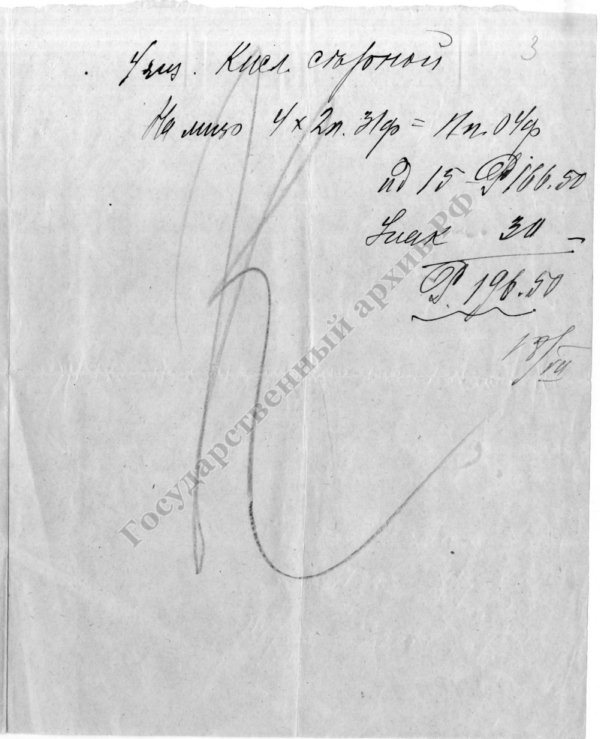 3
4 ящ. Кисл. сѣрной
На лицо 4 x 2п. 31ф = 11п. 04ф
по 15 - Р 166.50
Упак 30 -
Р. 196.50
18/VII
Государственный архив РФ